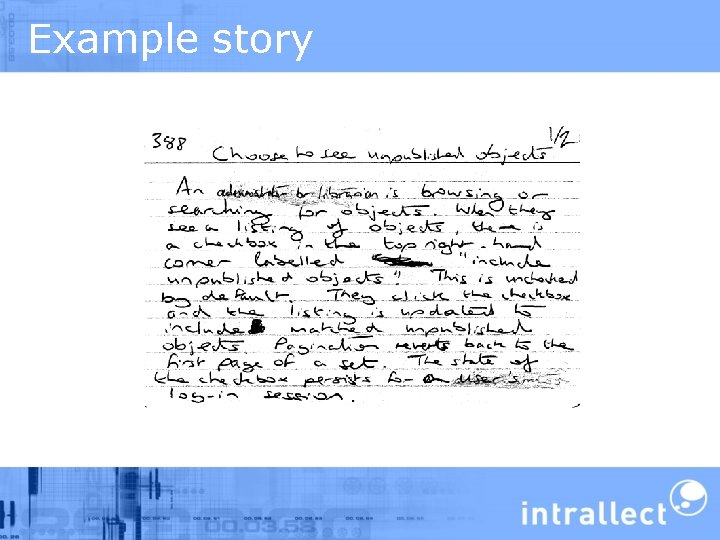 Example story
388
1/2
Choose to see unpublished objects
An administrator or librarian is browsing or
searching for objects. When they
see a listing of objects, there is
a checkbox in the top right-hand
corner labelled "include
unpublished objects". This is unchecked
by default. They click the checkbox
and the listing is updated to
include matched unpublished
objects. Pagination reverts back to the
first page of a set. The state of
the checkbox persists for a user's
log-in session.
intrallect